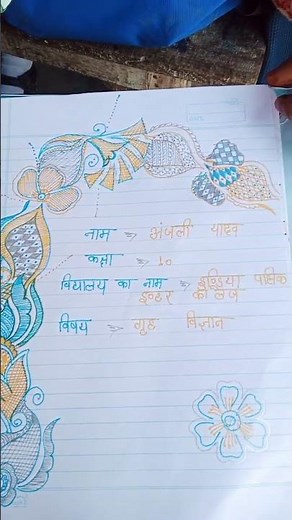 नाम ⇒ अंजली यादव
कक्षा ⇒ 10
विद्यालय का नाम ⇒ इण्डिया पब्लिक
इण्टर कॉलेज
विषय ⇒ गृह विज्ञान